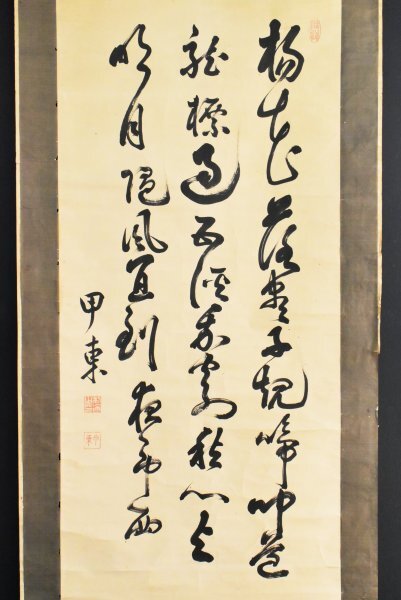 楊花落盡子規啼聞道
龍標過五溪我寄愁心与
明月随風直到夜郎西
甲東